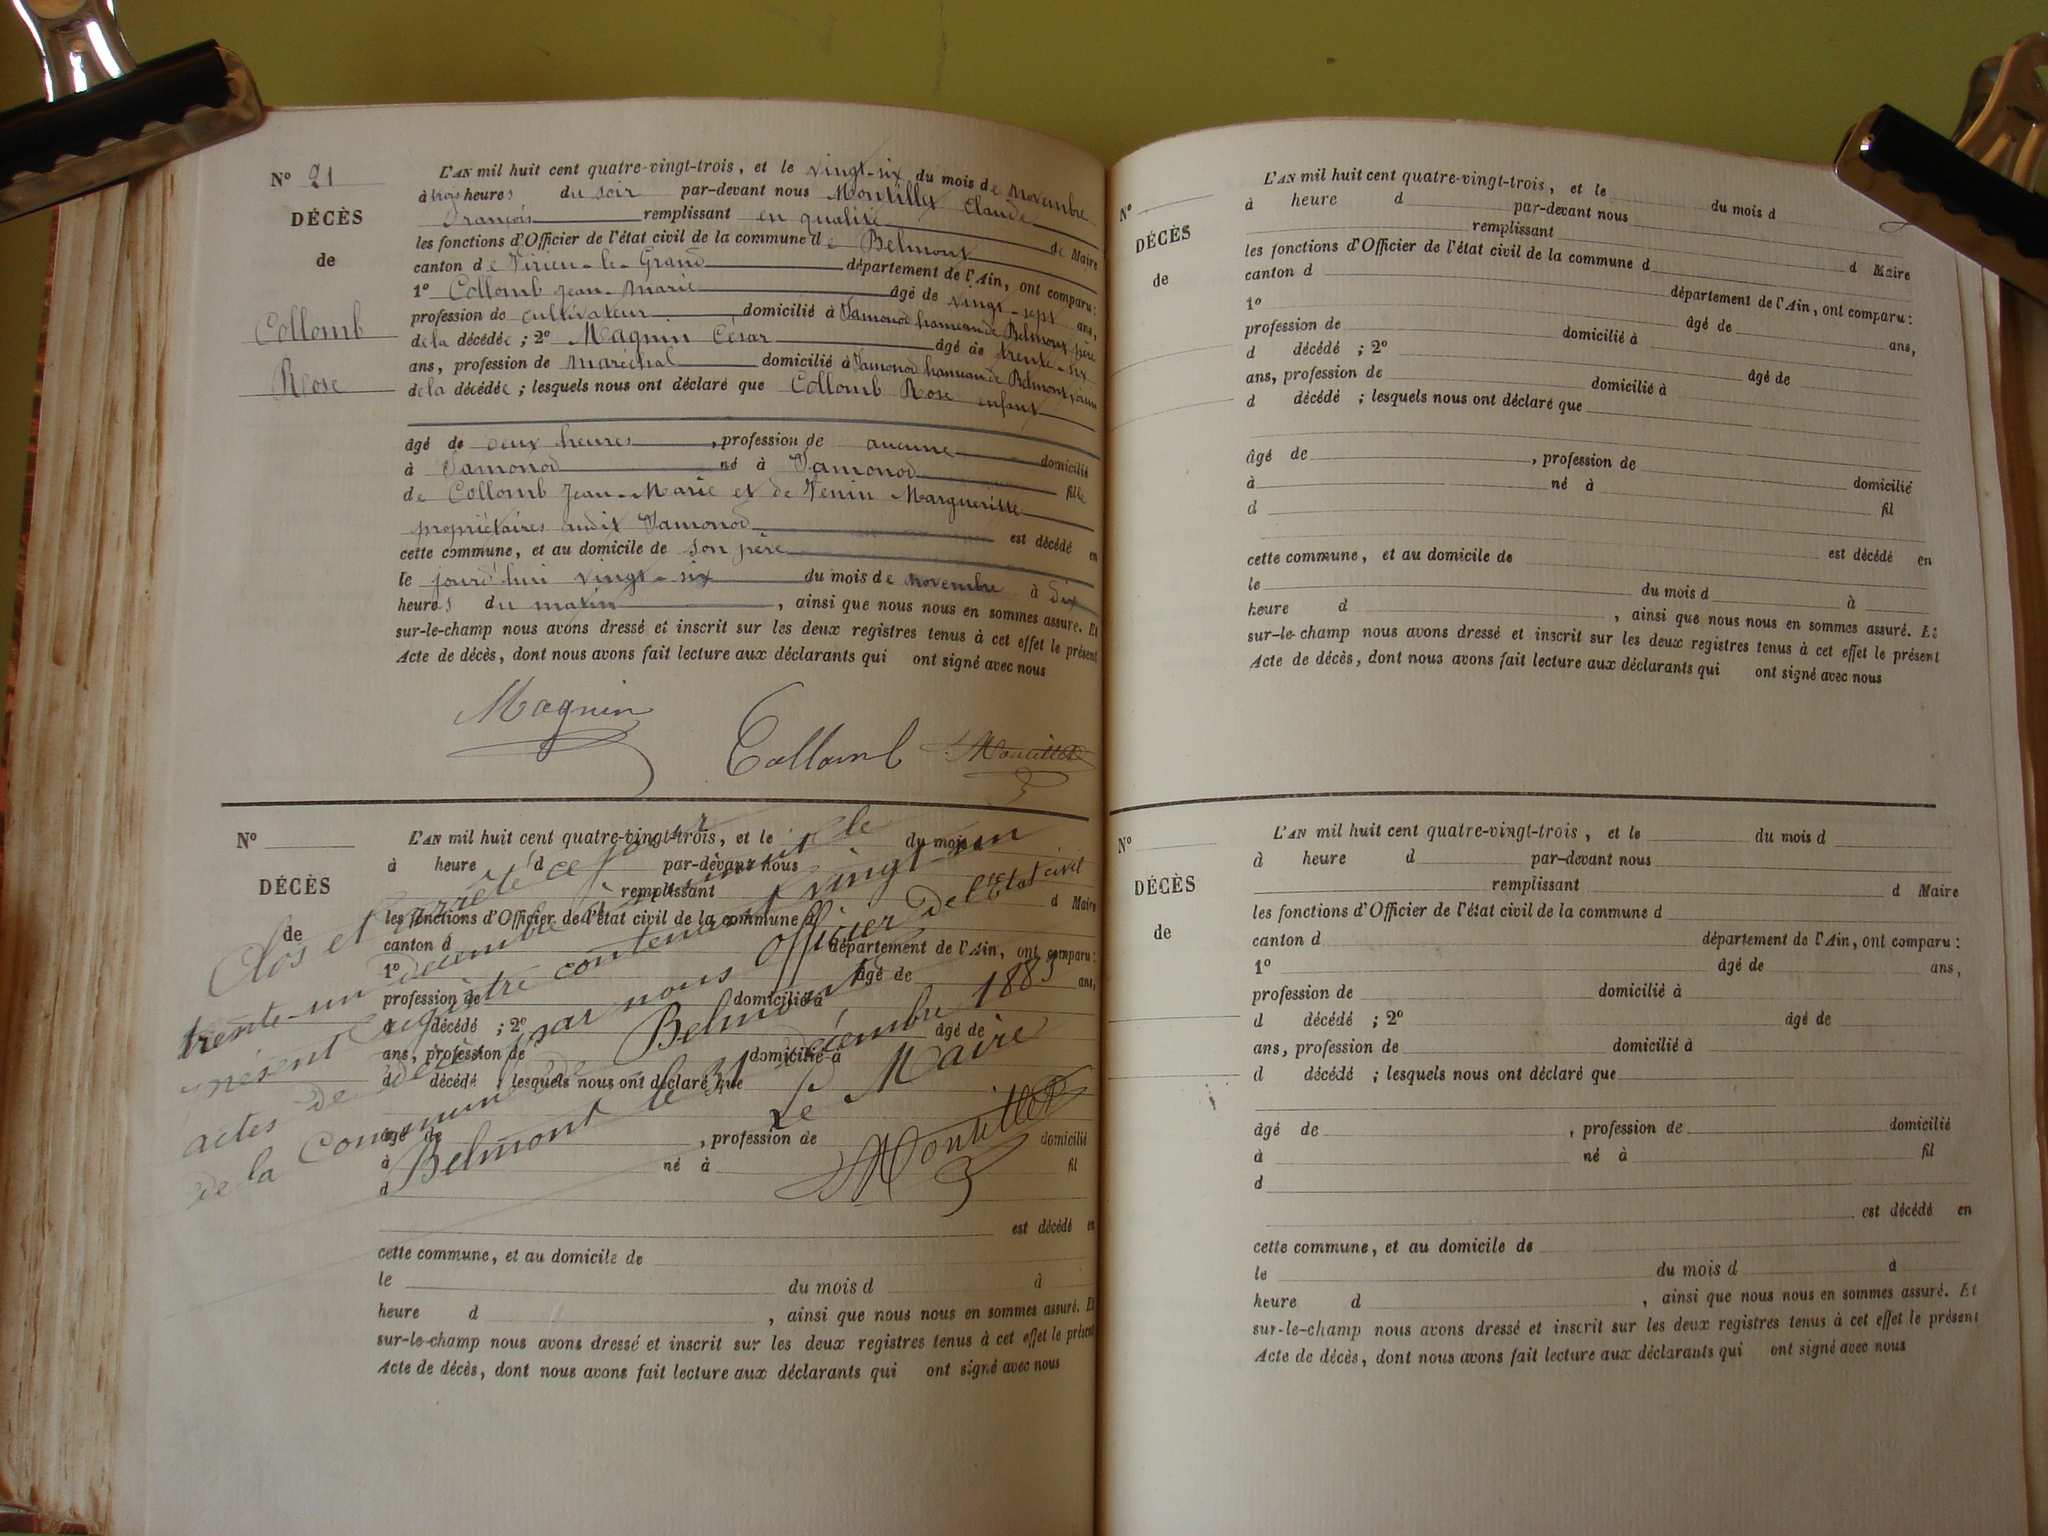 N° 21
DÉCÈS
de
Collomb
Rose
L'AN mil huit cent quatre-vingt-trois, et le vingt-six du mois de Novembre
à trois heures du soir par-devant nous Montillet Claude
François remplissant en qualité de Maire
les fonctions d'Officier de l'état civil de la commune de Belmont
canton de Virieu-le-Grand département de l'Ain, ont comparu :
1° Collomb Jean-Marie âgé de vingt-sept ans,
profession de cultivateur domicilié à Vamonod hameau de Belmont, père
de la décédée ; 2° Magnin César âgé de trente-six
ans, profession de maréchal domicilié à Vamonod hameau de Belmont,
de la décédée ; lesquels nous ont déclaré que Collomb Rose enfant
âgé de deux heures, profession de aucune domicilié
à Vamonod né à Vamonod fille
de Collomb Jean-Marie et de Venin Margueritte
propriétaires audit Vamonod est décédé en
cette commune, et au domicile de son père
le jourd'hui vingt-six du mois de novembre à dix
heures du matin, ainsi que nous nous en sommes assuré. Et
sur-le-champ nous avons dressé et inscrit sur les deux registres tenus à cet effet le présent
Acte de décès, dont nous avons fait lecture aux déclarants qui ont signé avec nous
Magnin
Collomb Montillet
N°
DÉCÈS
de
L'AN mil huit cent quatre-vingt-trois, et le du mois d
à heure d par-devant nous
remplissant d Maire
les fonctions d'Officier de l'état civil de la commune d
canton d département de l'Ain, ont comparu :
1° âgé de ans,
profession de domicilié à
d décédé ; 2° âgé de
ans, profession de domicilié à
d décédé ; lesquels nous ont déclaré que
âgé de , profession de domicilié
à né à fil
d
est décédé en
cette commune, et au domicile de
le du mois d à
heure d , ainsi que nous nous en sommes assuré. Et
sur-le-champ nous avons dressé et inscrit sur les deux registres tenus à cet effet le présent
Acte de décès, dont nous avons fait lecture aux déclarants qui ont signé avec nous
Clos et arrêté ce jour le
trente-un décembre à minuit le
présent registre contenant vingt-un
actes de décès par nous officier de l'état civil
de la Commune de Belmont
Belmont le 31 décembre 1883
Le Maire
Montillet
N°
DÉCÈS
de
L'AN mil huit cent quatre-vingt-trois, et le du mois d
à heure d par-devant nous
remplissant d Maire
les fonctions d'Officier de l'état civil de la commune d
canton d département de l'Ain, ont comparu :
1° âgé de ans,
profession de domicilié à
d décédé ; 2° âgé de
ans, profession de domicilié à
d décédé ; lesquels nous ont déclaré que
âgé de , profession de domicilié
à né à fil
d
est décédé en
cette commune, et au domicile de
le du mois d à
heure d , ainsi que nous nous en sommes assuré. Et
sur-le-champ nous avons dressé et inscrit sur les deux registres tenus à cet effet le présent
Acte de décès, dont nous avons fait lecture aux déclarants qui ont signé avec nous
N°
DÉCÈS
de
L'AN mil huit cent quatre-vingt-trois, et le du mois d
à heure d par-devant nous
remplissant d Maire
les fonctions d'Officier de l'état civil de la commune d
canton d département de l'Ain, ont comparu :
1° âgé de ans,
profession de domicilié à
d décédé ; 2° âgé de
ans, profession de domicilié à
d décédé ; lesquels nous ont déclaré que
âgé de , profession de domicilié
à né à fil
d
est décédé en
cette commune, et au domicile de
le du mois d à
heure d , ainsi que nous nous en sommes assuré. Et
sur-le-champ nous avons dressé et inscrit sur les deux registres tenus à cet effet le présent
Acte de décès, dont nous avons fait lecture aux déclarants qui ont signé avec nous